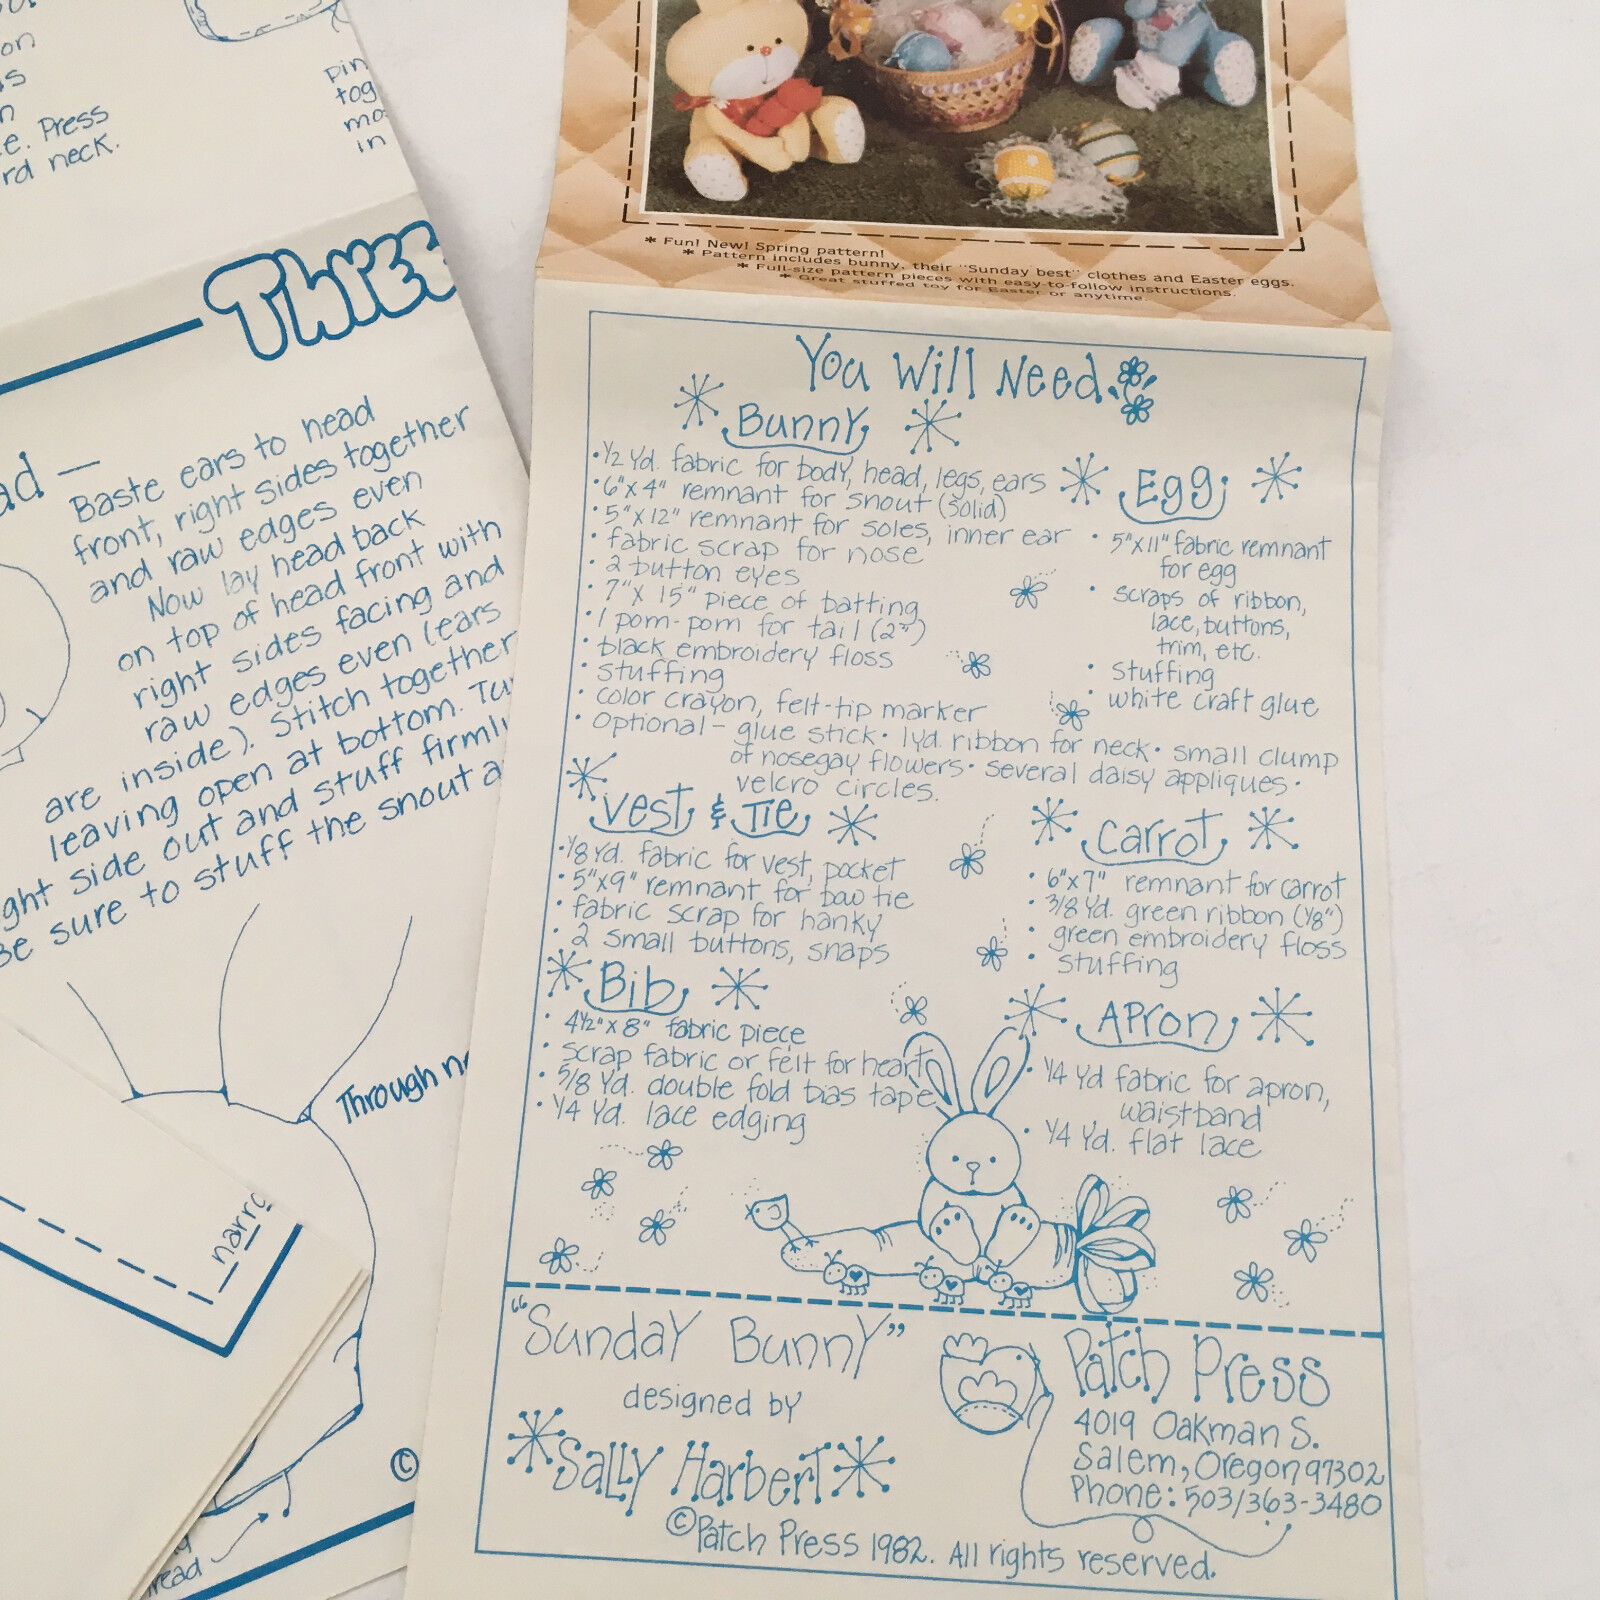 on
e. Press
rd neck.
pin
tog
mo
in
Three
ad —
Baste ears to head
front, right sides together
and raw edges even
Now lay head back
on top of head front with
right sides facing and
raw edges even (ears
are inside). Stitch together
leaving open at bottom. Tu
ght side out and stuff firmly
Be sure to stuff the snout a
Through n
narro
©
read
* Fun! New! Spring pattern!
* Pattern includes bunny, their "Sunday best" clothes and Easter eggs.
* Full-size pattern pieces with easy-to-follow instructions.
* Great stuffed toy for Easter or anytime.
You Will Need
Bunny
• 1/2 Yd. fabric for body, head, legs, ears
• 6"x4" remnant for snout (solid)
• 5"x12" remnant for soles, inner ear
• fabric scrap for nose
• 2 button eyes
• 7"x 15" piece of batting
• 1 pom-pom for tail (2")
• black embroidery floss
• stuffing
• color crayon, felt-tip marker
• optional - glue stick • 1yd. ribbon for neck • small clump
of nosegay flowers • several daisy appliques •
velcro circles.
Egg
• 5"x11" fabric remnant
for egg
• scraps of ribbon,
lace, buttons,
trim, etc.
• stuffing
• white craft glue
Vest & Tie
• 1/8 Yd. fabric for vest, pocket
• 5"x9" remnant for bow tie
• fabric scrap for hanky
• 2 small buttons, snaps
Carrot
• 6"x7" remnant for carrot
• 3/8 Yd. green ribbon (1/8")
• green embroidery floss
• stuffing
Bib
• 4 1/2"x8" fabric piece
• scrap fabric or felt for heart
• 5/8 Yd. double fold bias tape
• 1/4 Yd. lace edging
Apron
• 1/4 Yd fabric for apron,
waistband
• 1/4 Yd. flat lace
"Sunday Bunny"
designed by
Sally Harbert
Patch Press
4019 Oakman S.
Salem, Oregon 97302
Phone: 503/363-3480
© Patch Press 1982. All rights reserved.